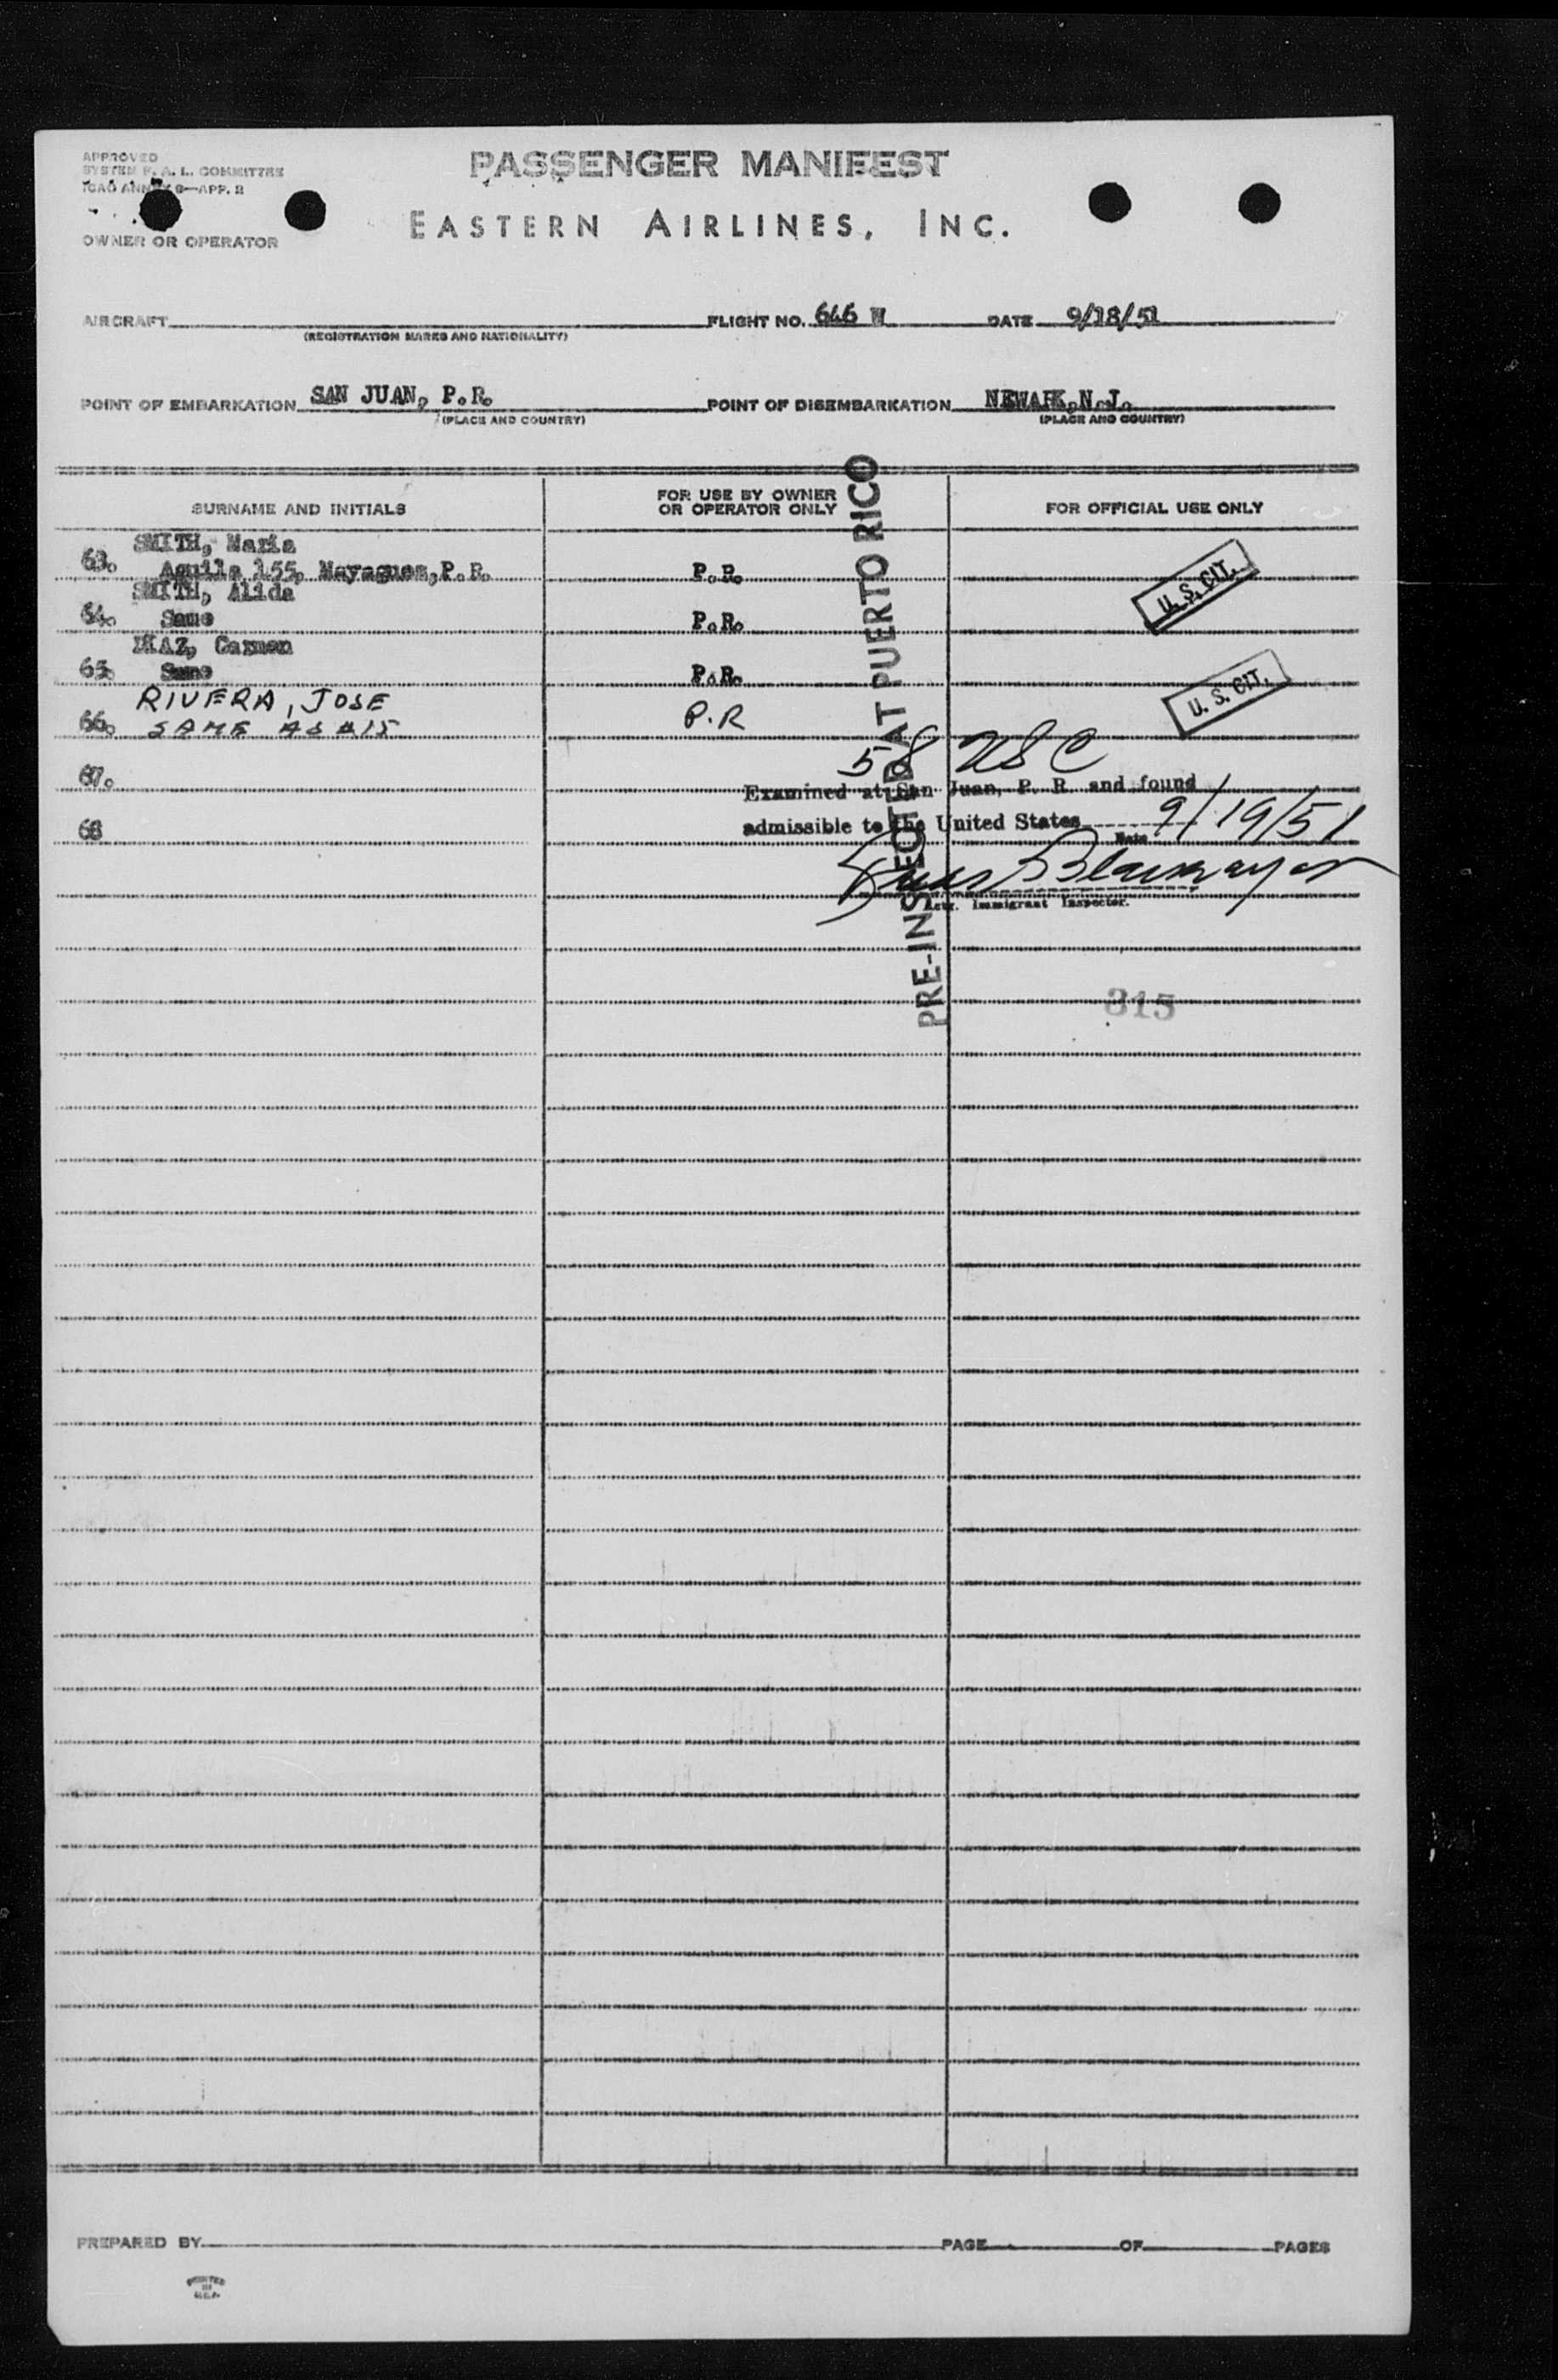 APPROVED
SYSTEM F. A. L. COMMITTEE
ICAO ANNEX 9—APP. 2
OWNER OR OPERATOR
PASSENGER MANIFEST
EASTERN AIRLINES, INC.
AIRCRAFT
(REGISTRATION MARKS AND NATIONALITY)
FLIGHT NO. 646 W
DATE 9/18/51
POINT OF EMBARKATION SAN JUAN, P.R.
(PLACE AND COUNTRY)
POINT OF DISEMBARKATION NEWARK,N.J.
(PLACE AND COUNTRY)
SURNAME AND INITIALS
FOR USE BY OWNER
OR OPERATOR ONLY
FOR OFFICIAL USE ONLY
SMITH, Maria
63. Aguila 155, Mayaguez,P.R. P.R.
U. S. CIT.
SMITH, Alida
64. Same P.R.
DIAZ, Carmen
65. Same P.R.
U. S. CIT.
RIVERA, JOSE
66. SAME AS #15 P.R
PRE-INSPECTED AT PUERTO RICO
58 USC
67.
Examined at San Juan, P. R. and found
68
admissible to the United States 9/19/51
Date
Immigrant Inspector.
315
PREPARED BY
PAGE OF PAGES
PRINTED
IN
U.S.A.